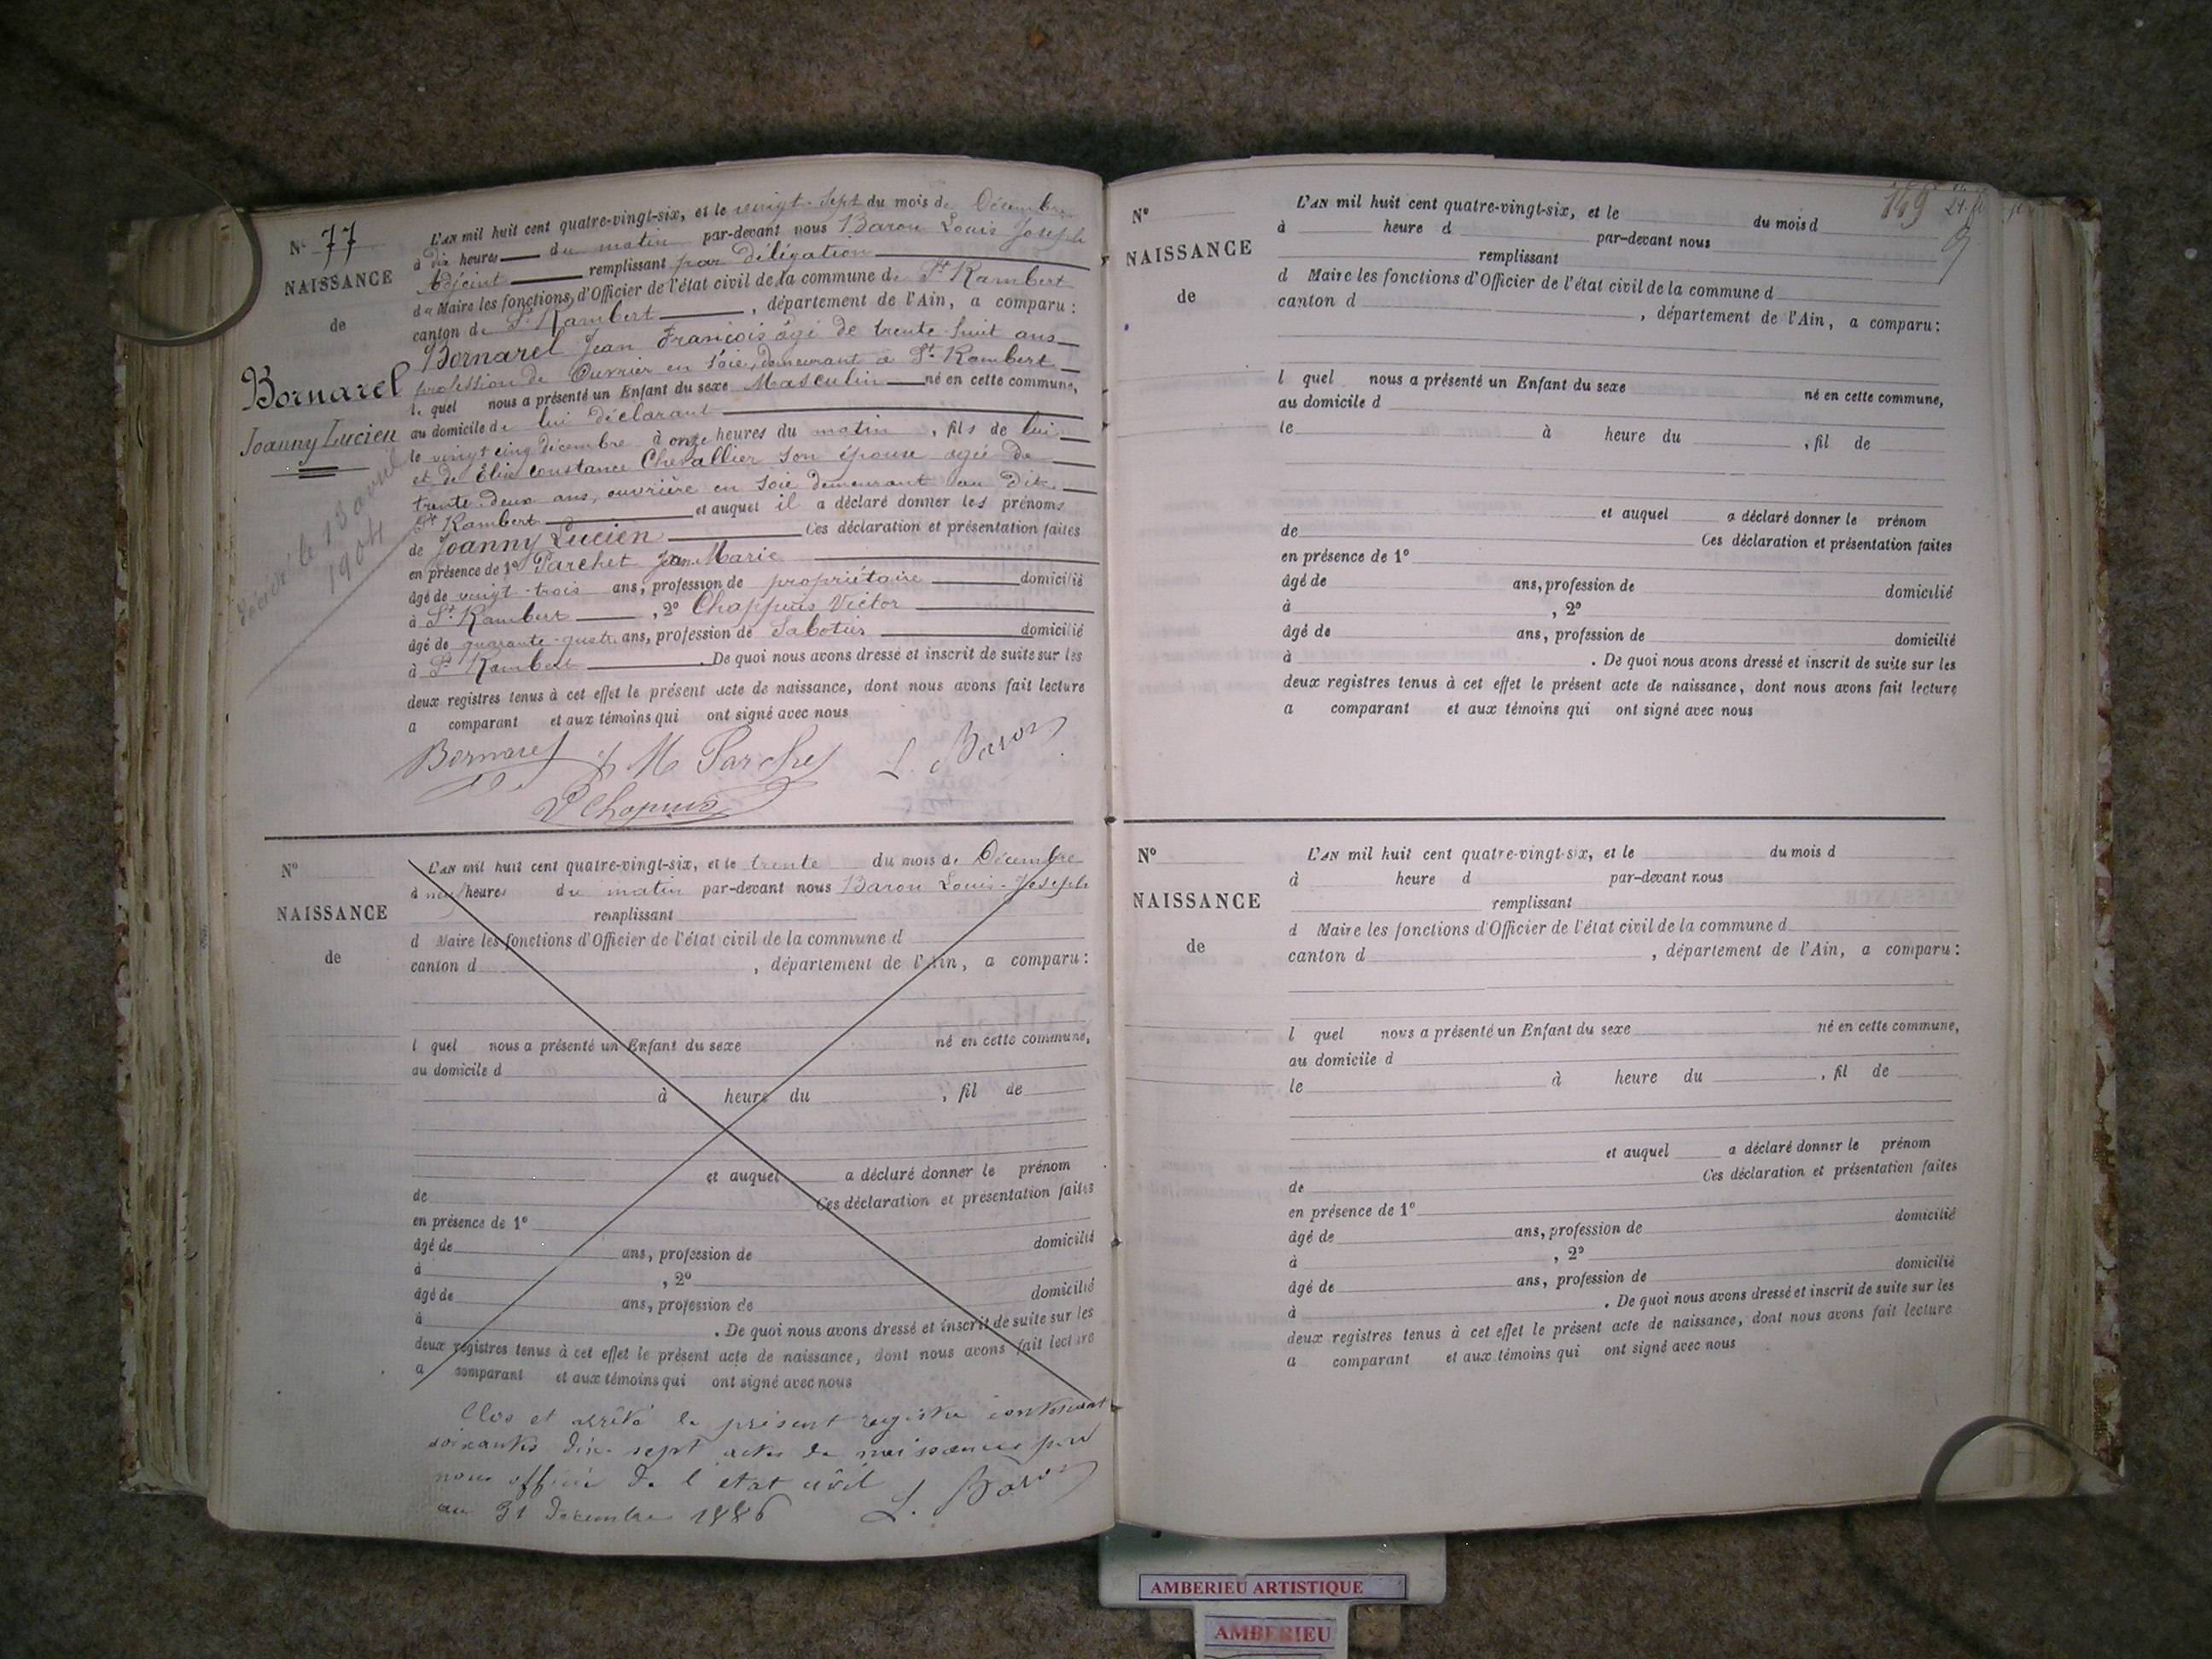 N° 77
NAISSANCE
de
Bornarel
Joanny Lucien
Décédé le 13 avril
1904
L'AN mil huit cent quatre-vingt-six, et le vingt-sept du mois de Décembre
à dix heures du matin par-devant nous Baron Louis Joseph
Adjoint remplissant par délégation
du Maire les fonctions d'Officier de l'état civil de la commune de St Rambert
canton de St Rambert, département de l'Ain, a comparu:
Bornarel Jean François âgé de trente-huit ans
profession de Ouvrier en soie, demeurant à St. Rambert
le quel nous a présenté un Enfant du sexe Masculin né en cette commune,
au domicile de lui déclarant
le vingt cinq décembre à onze heures du matin, fils de lui
et de Elise Constance Chevallier son épouse agée de
trente-deux ans, ouvrière en soie demeurant au dit
St Rambert et auquel il a déclaré donner les prénoms
de Joanny Lucien Ces déclaration et présentation faites
en présence de 1° Parchet Jean Marie
âgé de vingt-trois ans, profession de propriétaire domicilié
à St. Rambert, 2° Chappuis Victor
âgé de quarante-quatre ans, profession de Sabotier domicilié
à St Rambert. De quoi nous avons dressé et inscrit de suite sur les
deux registres tenus à cet effet le présent acte de naissance, dont nous avons fait lecture
a comparant et aux témoins qui ont signé avec nous
Bornarel J M Parchet L. Baron
V Chapuis
N°
NAISSANCE
de
L'AN mil huit cent quatre-vingt-six, et le trente du mois de Décembre
à neuf heures du matin par-devant nous Baron Louis-Joseph
remplissant
d Maire les fonctions d'Officier de l'état civil de la commune d
canton d , département de l'Ain, a comparu:
l quel nous a présenté un Enfant du sexe né en cette commune,
au domicile d
à heure du , fil de
et auquel a déclaré donner le prénom
de Ces déclaration et présentation faites
en présence de 1°
âgé de ans, profession de domicilié
à , 2°
âgé de ans, profession de domicilié
à . De quoi nous avons dressé et inscrit de suite sur les
deux registres tenus à cet effet le présent acte de naissance, dont nous avons fait lecture
a comparant et aux témoins qui ont signé avec nous
Clos et arrêté le présent registre contenant
soixante dix-sept actes de naissances par
nous officier de l'état civil
au 31 décembre 1886 L. Baron
149
N°
NAISSANCE
de
L'AN mil huit cent quatre-vingt-six, et le du mois d
à heure d par-devant nous
remplissant
d Maire les fonctions d'Officier de l'état civil de la commune d
canton d , département de l'Ain, a comparu:
l quel nous a présenté un Enfant du sexe né en cette commune,
au domicile d
le à heure du , fil de
et auquel a déclaré donner le prénom
de Ces déclaration et présentation faites
en présence de 1°
âgé de ans, profession de domicilié
à , 2°
âgé de ans, profession de domicilié
à . De quoi nous avons dressé et inscrit de suite sur les
deux registres tenus à cet effet le présent acte de naissance, dont nous avons fait lecture
a comparant et aux témoins qui ont signé avec nous
N°
NAISSANCE
de
L'AN mil huit cent quatre-vingt-six, et le du mois d
à heure d par-devant nous
remplissant
d Maire les fonctions d'Officier de l'état civil de la commune d
canton d , département de l'Ain, a comparu:
l quel nous a présenté un Enfant du sexe né en cette commune,
au domicile d
le à heure du , fil de
et auquel a déclaré donner le prénom
de Ces déclaration et présentation faites
en présence de 1°
âgé de ans, profession de domicilié
à , 2°
âgé de ans, profession de domicilié
à . De quoi nous avons dressé et inscrit de suite sur les
deux registres tenus à cet effet le présent acte de naissance, dont nous avons fait lecture
a comparant et aux témoins qui ont signé avec nous
AMBERIEU ARTISTIQUE
AMBERIEU